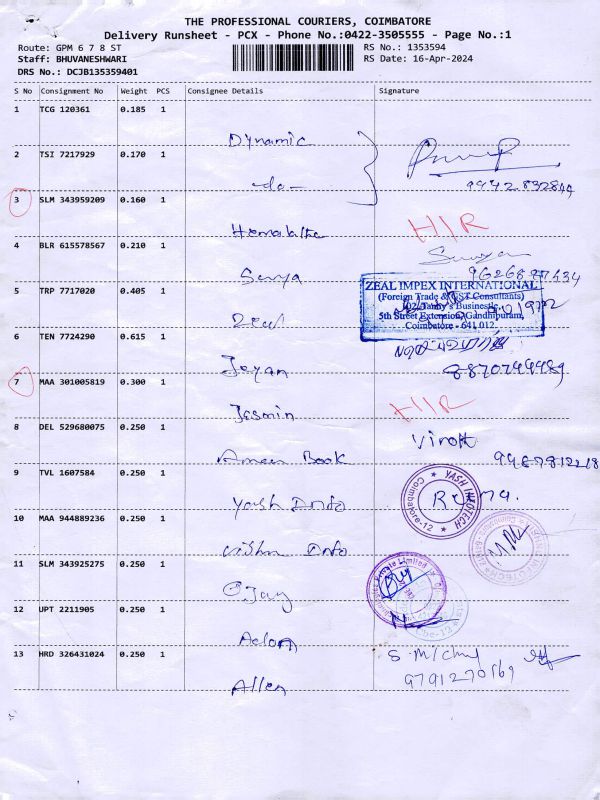 THE PROFESSIONAL COURIERS, COIMBATORE
Delivery Runsheet - PCX - Phone No.:0422-3505555 - Page No.:1
Route: GPM 6 7 8 ST
RS No.: 1353594
Staff: BHUVANESHWARI
RS Date: 16-Apr-2024
DRS No.: DCJB135359401
S No Consignment No Weight PCS Consignee Details Signature
1 TCG 120361 0.185 1
Dynamic
2 TSI 7217929 0.170 1
-do-
9942832844
3 SLM 343959209 0.160 1
Hemalatha H/R
4 BLR 615578567 0.210 1
Surya
9626877434
ZEAL IMPEX INTERNATIONAL
(Foreign Trade & GST Consultants)
5 TRP 7717020 0.405 1
5th Street Extension, Gandhipuram,
Coimbatore - 641 012.
Zeal
6 TEN 7724290 0.615 1
Jeyan 8870749489
7 MAA 301005819 0.300 1
Jesmin H/R
8 DEL 529680075 0.250 1
Ameen Book 9987812218
9 TVL 1607584 0.250 1
YASH INFOTECH
Coimbatore-12
Yash Info
10 MAA 944889236 0.250 1
Vishnu Info
11 SLM 343925275 0.250 1
Private Limited
Ojay
12 UPT 2211905 0.250 1
Adon
13 HRD 326431024 0.250 1
9791270169
Allen